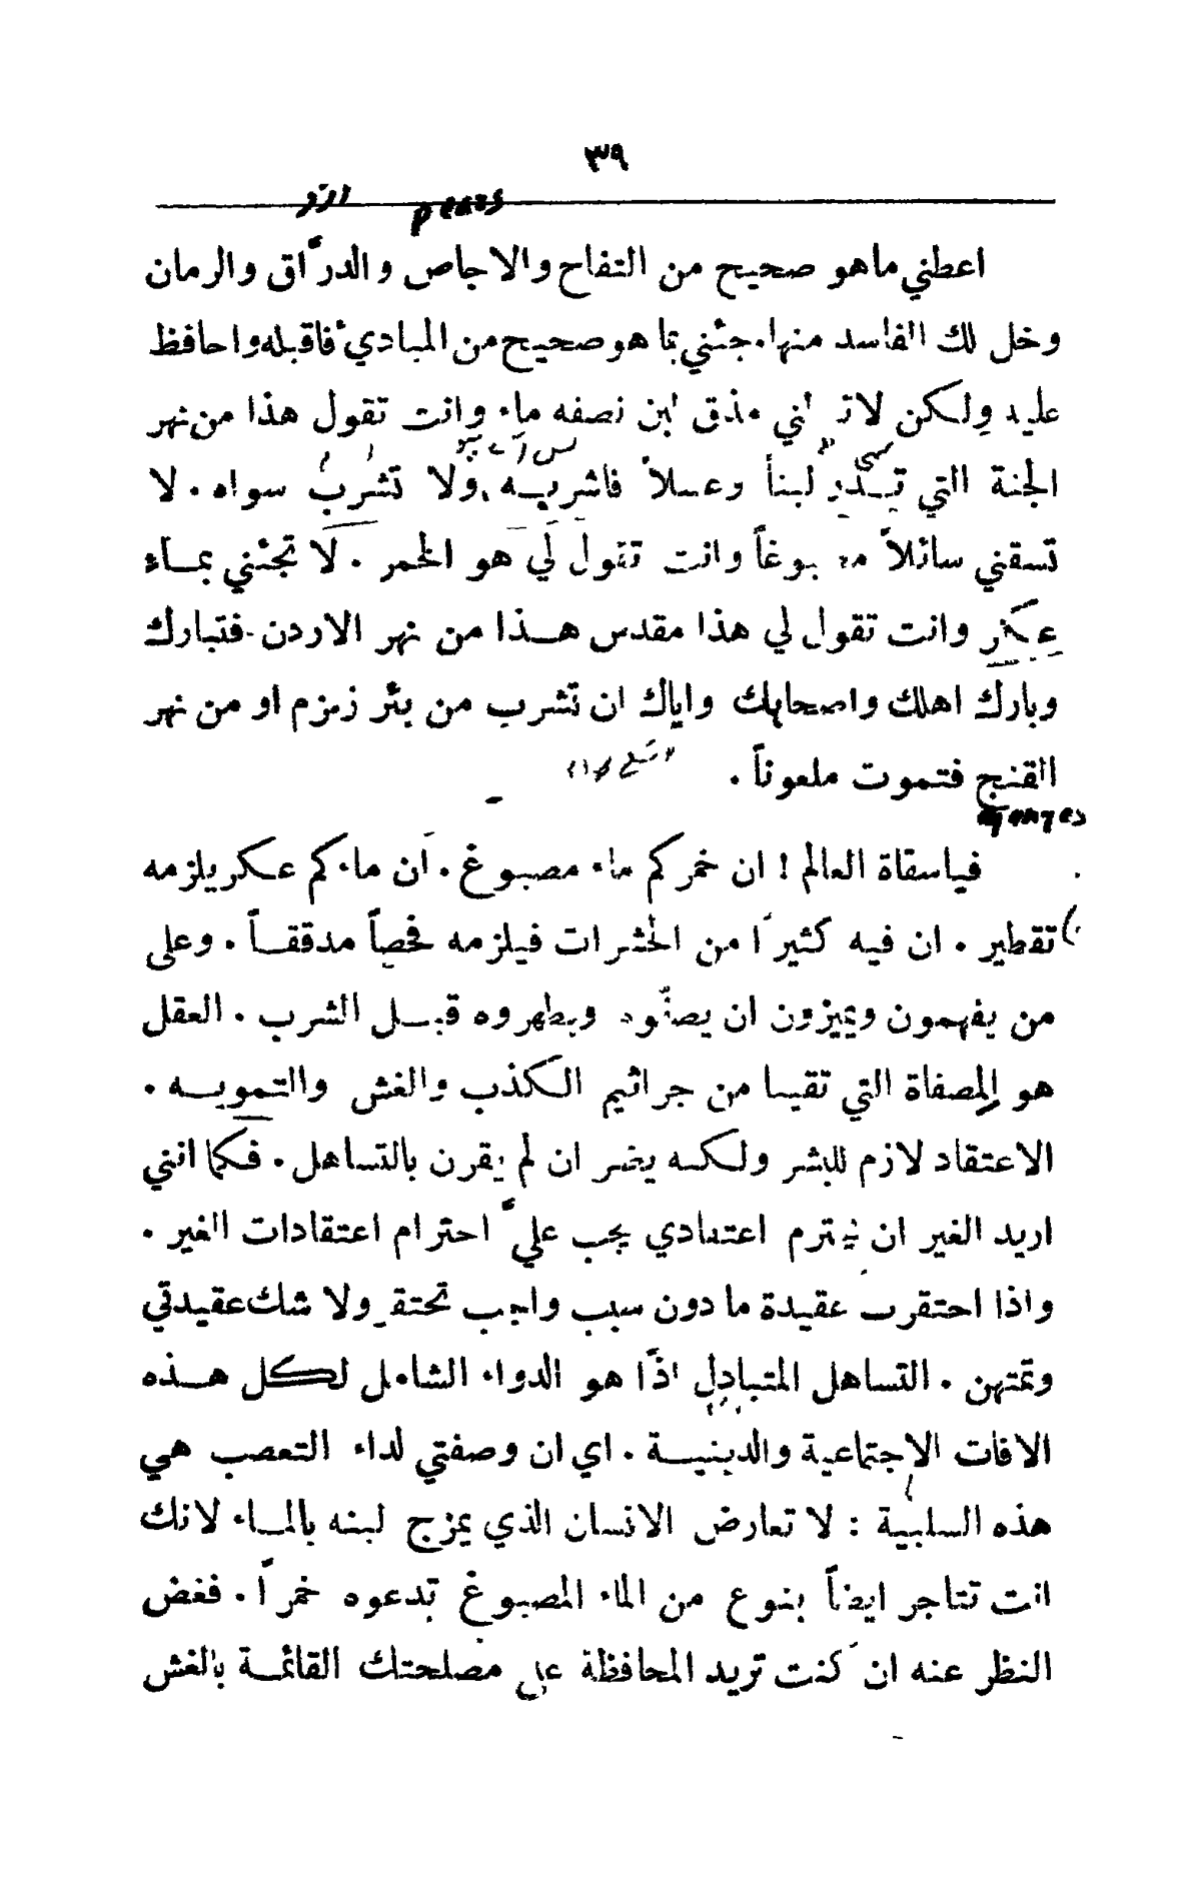 ٣٩
pears
اعطني ماهو صحيح من التفاح والاجاص والدرَّاق والرمان
وخل لك الفاسد منها. جئني بما هو صحيح من المبادئ فاقبله واحافظ
عليه ولكن لا مذق لبن نصفه ماء وانت تقول هذا من نهر
الجنة التي لبناً وعسلاً فاشربه ولا تشرب سواه. لا
تسقني سائلاً بوغاً وانت تقول لي هو الخمر. لا تجئني بمـاء
عكر وانت تقول لي هذا مقدس هـذا من نهر الاردن. فتبارك
وبارك اهلك واصحابك واياك ان تشرب من بئر زمزم او من نهر
القنج فتموت ملعوناً.
ganges
فياسقاة العالم! ان خمركم ماء مصبوغ. ان ماءكم عكر يلزمه
تقطير. ان فيه كثيراً من الحشرات فيلزمه فحصاً مدققـاً. وعلى
من يفهمون ويميزون ان يصفّوه ويطهروه قبـل الشرب. العقل
هو المصفاة التي تقينا من جراثيم الكذب والغش والتمويـه.
الاعتقاد لازم للبشر ولكنه يضر ان لم يقرن بالتساهل. فكما انني
اريد الغير ان يحترم اعتقادي يجب عليَّ احترام اعتقادات الغير.
واذا احتقرت عقيدة ما دون سبب واجب تحتقر ولا شك عقيدتي
وتمتهن. التساهل المتبادل اذًا هو الدواء الشامل لكل هـذه
الافات الاجتماعية والدينيـة. اي ان وصفتي لداء التعصب هي
هذه السلبية: لا تعارض الانسان الذي يمزج لبنه بالمـاء لانك
انت تتاجر ايضاً بنوع من الماء المصبوغ تدعوه خمراً. فغض
النظر عنه ان كنت تريد المحافظة على مصلحتك القائمـة بالغش